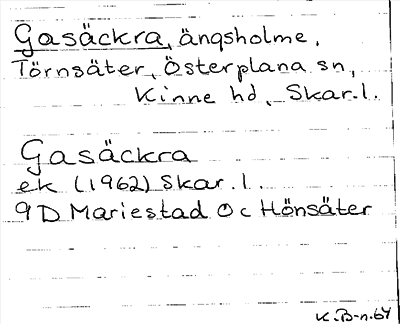 Gasäckra, ängsholme,
Törnsäter, Österplana sn,
Kinne hd, Skar.l.
Gasäckra
ek (1962) Skar.l.
9D Mariestad 0c Hönsäter
K.B-n.64